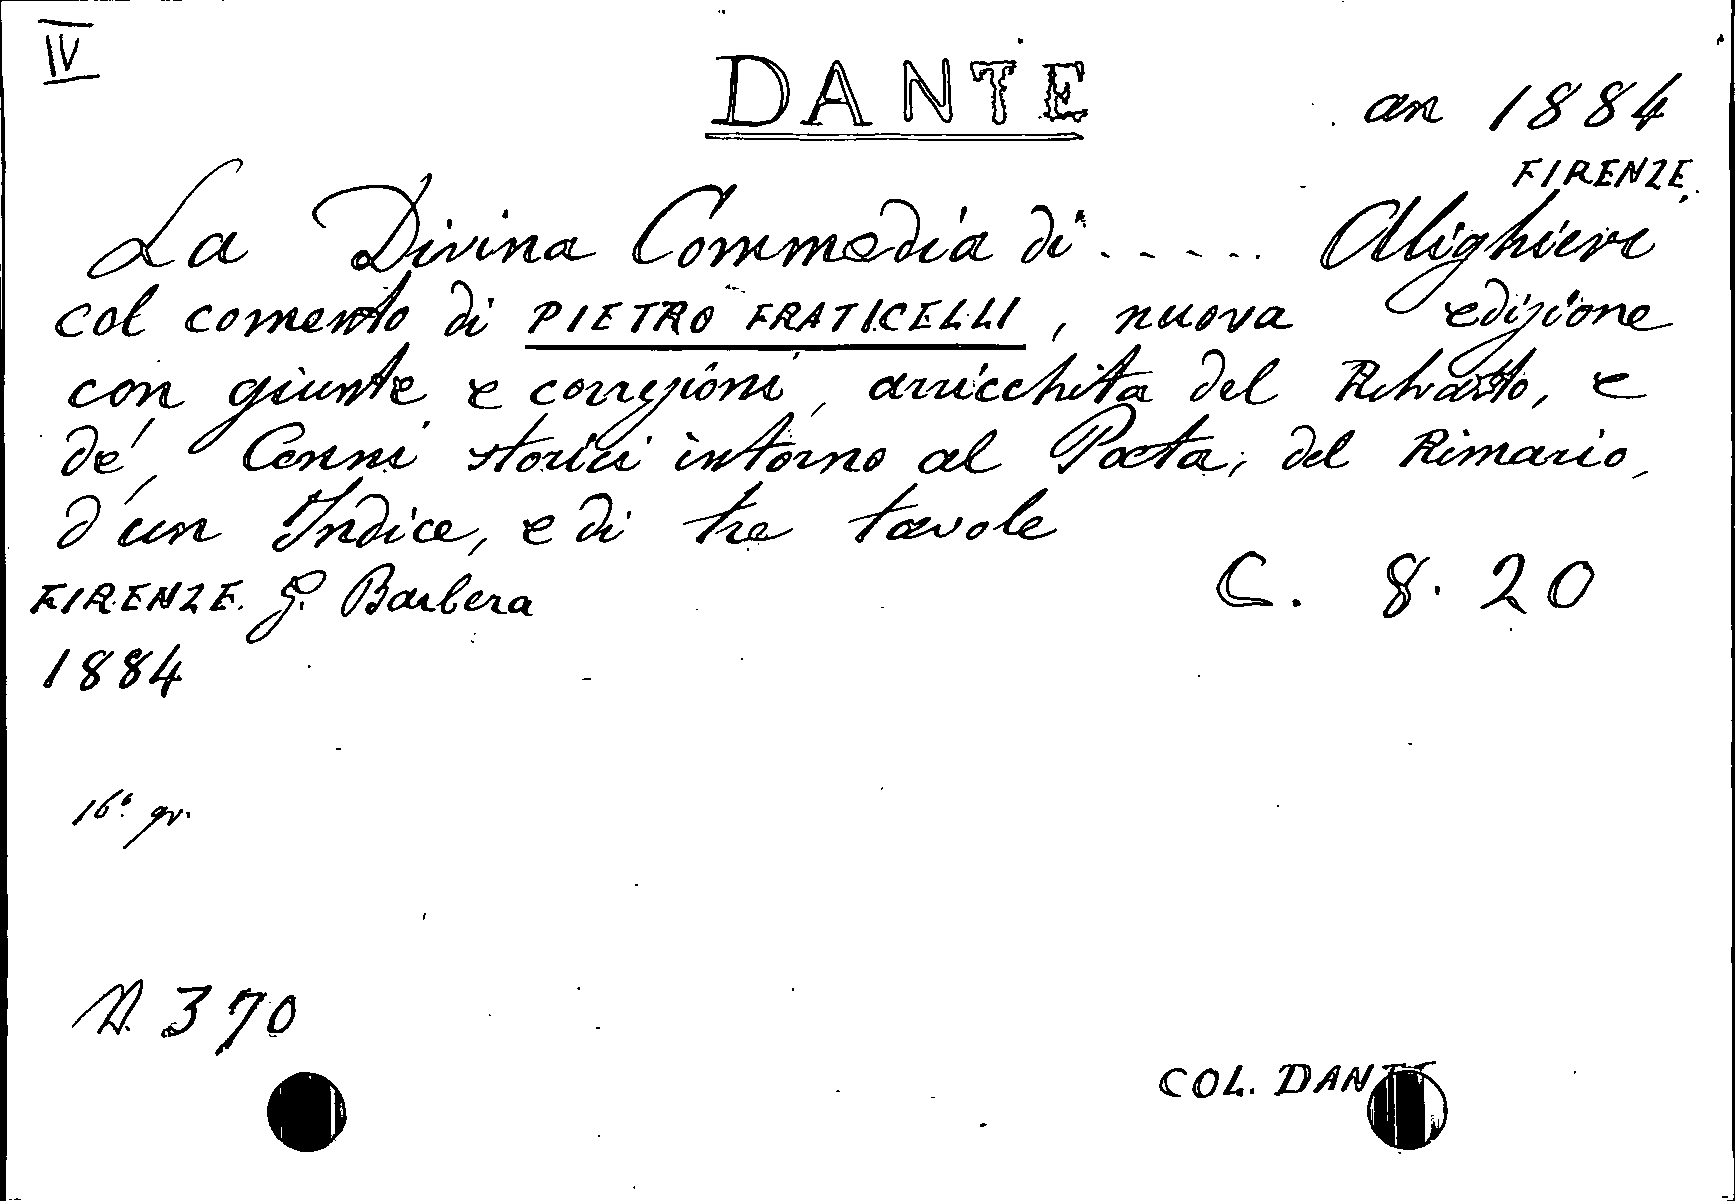 IV
DANTE
an 1884
FIRENZE.
La Divina Commedia di ..... Alighieri
col comento di PIETRO FRATICELLI, nuova edizione
con giunte e correzioni, arricchita del Ritratto, e
de' Cenni storici intorno al Poeta, del Rimario,
d'un Indice, e di tre tavole
FIRENZE. G. Barbera
C. 8. 20
1884
16º gr.
N. 370
COL. DANTE